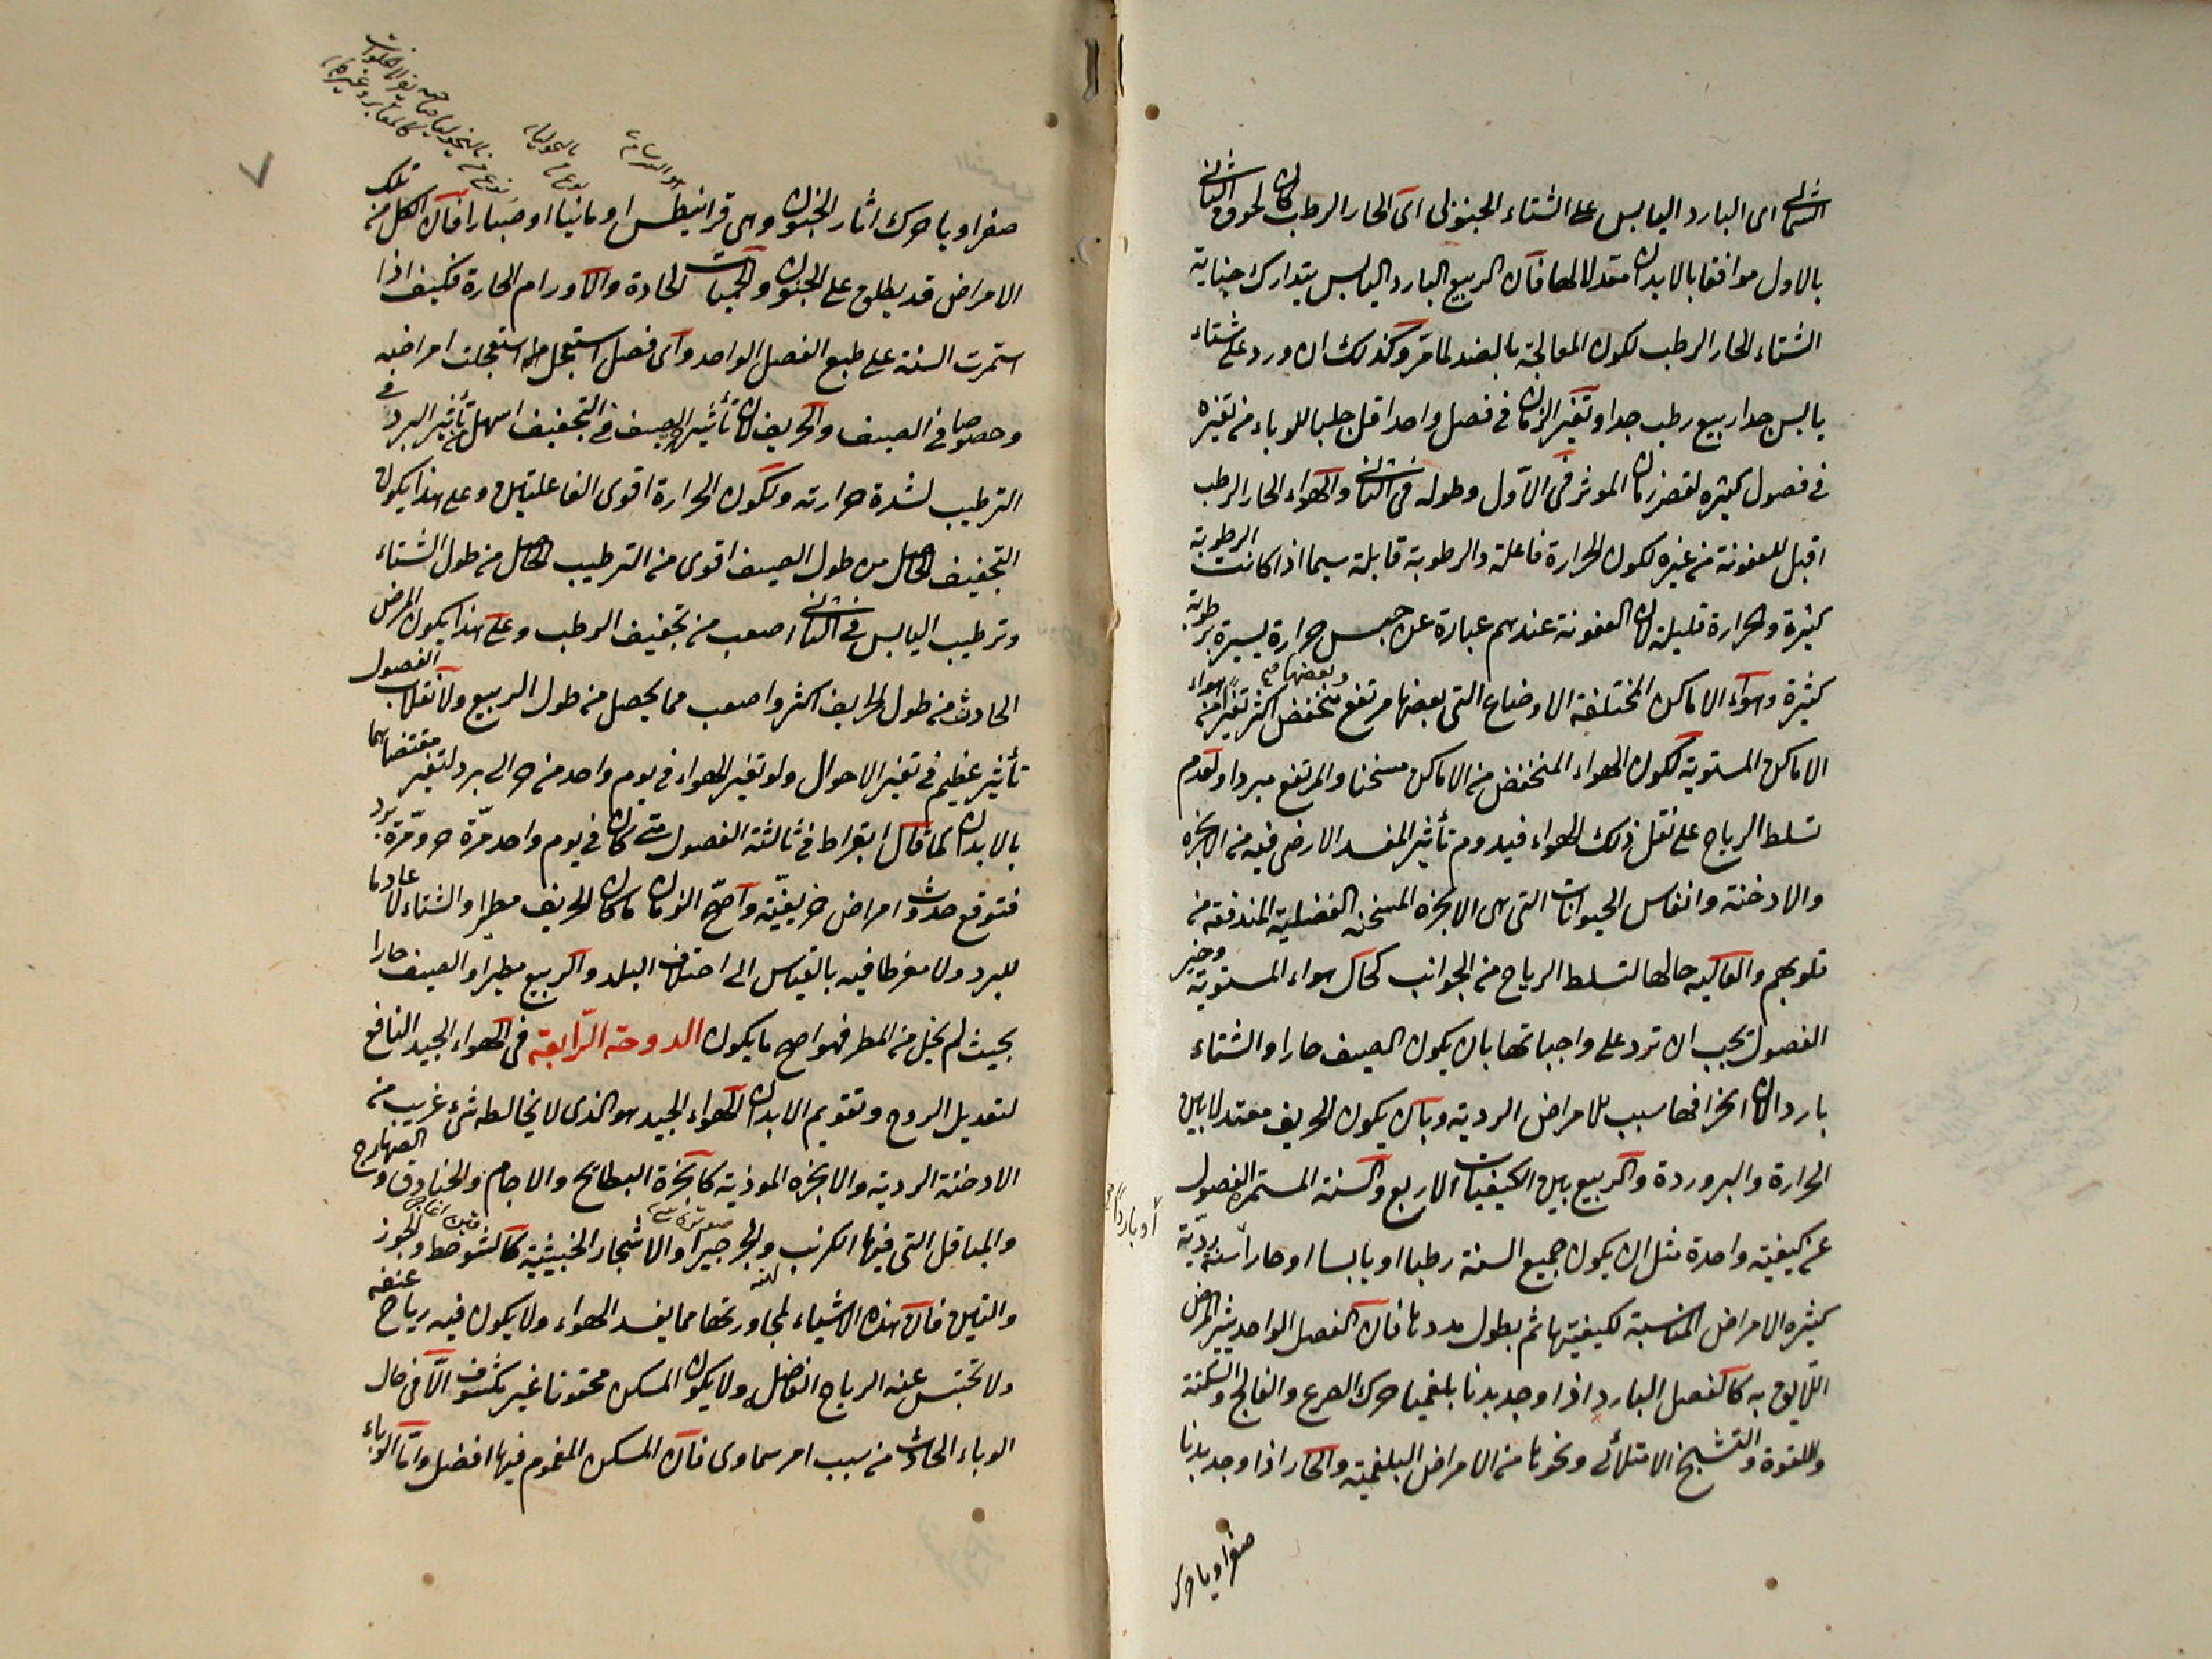 الشمالى اى البارد اليابس على الشتاء الجنوبى اى الحار الرطب كان لحوق الثانى
بالاول موافقا بالابدان معدلا لها فان الربيع البارد اليابس يتدارك جناية
الشتاء الحار الرطب لكون المعالجة بالضد لما مرّ وكذلك ان ورد على شتاء
يابس جدا ربيع رطب جدا وتغير الزمان فى فصل واحد اقل جلبا للوباء من تغيره
فى فصول كثيره لقصر زمان الموثر فى الاوّل وطوله فى الثانى والهواء الحار الرطب
اقبل للعفونة من غيره لكون الحرارة فاعلة والرطوبة قابلة سيما اذا كانت الرطوبة
كثيرة والحرارة قليلة لان العفونة عندهم عبارة عن حبس حرارة يسيرة برطوبة
كثيرة وهواء الاماكن المختلفة الاوضاع التى بعضها مرتفع وبعضها منخفض اكثر تغيرا من هواء
الاماكن المستوية لكون الهواء المنخفض من الاماكن مسخنا والمرتفع مبردا ولعدم
تسلط الرياح على نقل ذلك الهواء فيدوم تأثير المفسد الارضى فيه من الابخره
والادخنة وانفاس الحيوانات التى هى الابخره المسخنه الفضلية المندفعة من
قلوبهم والعاليه حالها لتسلط الرياح من الجوانب كحال هواء المستوية وخير
الفصول يجب ان ترد على واجباتها بان يكون الصيف حارا والشتاء
باردا لان انحرافها سبب للامراض الردية وبان يكون الخريف معتدلا بين
الحرارة والبروردة والربيع بين الكيفيات الاربع والسنة المستمرة الفصول
على كيفية واحدة مثل ان يكون جميع السنة رطبا او يابسا او حارا سنة رديّة
أو باردا صح
كثيره الامراض المناسبة لكيفيتها ثم بطول مددها فان الفصل الواحد يثير المرض
اللّايق به كالفصل البارد اذا وجد بدنا بلغميا حرك الصرع والفالج والسكتة
واللقوة والتشنج الامتلائى ونحوها من الامراض البلغمية والحار اذا وجد بدنا
صفراويا حرك
صفراويا حرك اثار الجنون وهى قرانيطس او مانيا او صبارا فان الكل من تلك
الامراض قد يطلق على الجنون والحميات الحادة والاورام الحارة فكيف اذا
استمرت السنة على طبع الفصل الواحد واى فصل استعجل استعجلت امراضه
وخصوصا فى الصيف والخريف لان تأثير الصيف فى التجفيف اسهل من تأثير البرد فى
الترطيب لشدة حرارته ولكون الحرارة اقوى الفاعليتين وعلى هذا يكون
التجفيف الحاصل من طول الصيف اقوى من الترطيب الحاصل من طول الشتاء
وترطيب اليابس فى الثانى اصعب من تجفيف الرطب وعلى هذا يكون المرض
الحادث من طول الخريف اكثر واصعب مما يحصل من طول الربيع ولانقلاب الفصول
تأثير عظيم فى تغير الاحوال ولو تغير الهواء فى يوم واحد من حر الى برد لتغير مقتضاهما
بالابدان كما قال ابقراط فى ثالثة الفصول متى كان فى يوم واحد مرّة حر ومرّة برد
فتوقع حدوث امراض خريفيّة واصحّ الزمان ما كان الخريف مطيرا والشتاء لا عادما
للبرد ولا مفرطا فيه بالقياس الى احتمال البلد والربيع مطيرا والصيف حارا
بحيث لم يخل من المطر فهو اصح ما يكون الدوحة الرّابعة فى الهواء الجيد النافع
لتعديل الروح وتقويم الابدان الهواء الجيد هو الذى لا يخالطه شىء غريب من
الادخنة الردية والابخره الموذية كابخرة البطائح والاجام والخنادق والصهاريج
والمباقل التى فيها الكرنب والجرجير والاشجار الخبيثية كالشوحط والجوز
والتين فان هذه الاشياء لمجاورتها مما يفسد الهواء ولا يكون فيه رياح عنفه
ولا تحتبس عنه الرياح الفاضلة ولا يكون المسكن محقونا غير مكشوف الّا فى حال
الوباء الحادث من سبب امر سماوى فان المسكن المغموم فيها افضل وامّا الوباء